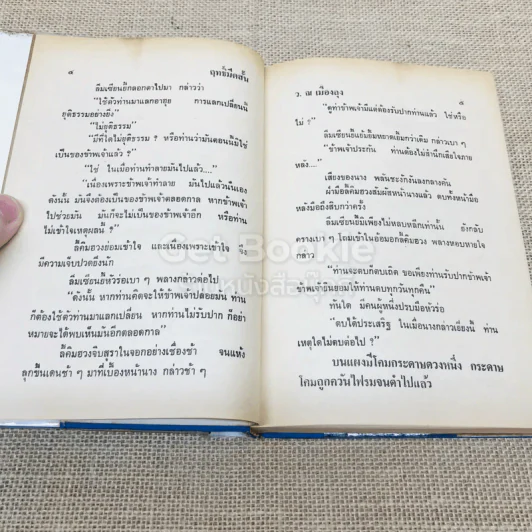 ๔ ฤทธิ์มีดสั้น
ลิ้มเซียนยี้กลอกตาไปมา กล่าวว่า
"ใช้ตัวท่านมาแลกอายุย การแลกเปลี่ยนนี้
ยุติธรรมอย่างยิ่ง"
"ไม่ยุติธรรม"
"มีที่ใดไม่ยุติธรรม ? หรือท่านว่ามันตอนนี้มิใช่
เป็นของข้าพเจ้าแล้ว ?"
"ใช่ ในเมื่อท่านทำลายมันไปแล้ว..."
"เนื่องเพราะข้าพเจ้าทำลาย มันไปแล้วนี่เอง
ดังนั้น มันจึงต้องเป็นของข้าพเจ้าตลอดกาล หากข้าพเจ้า
ไปช่วยมัน มันก็จะไม่เป็นของข้าพเจ้าอีก หรือท่าน
ไม่เข้าใจเหตุผลนี้ ?"
ลี้คิมฮวงย่อมเข้าใจ และเนื่องเพราะเข้าใจ จึง
มีความเจ็บปวดยิ่งนัก
ลิ้มเซียนยี้หัวร่อเบา ๆ พลางกล่าวต่อไป
"ดังนั้น หากท่านคิดจะให้ข้าพเจ้าปล่อยมัน ท่าน
ก็ต้องใช้ตัวท่านมาแลกเปลี่ยน หากท่านไม่รับปาก ก็อย่า
หมายจะได้พบเห็นมันอีกตลอดกาล"
ลี้คิมฮวงจิบสุราในจอกอย่างเชื่องช้า จนแห้ง
ลุกขึ้นเดินช้า ๆ มาที่เบื้องหน้านาง กล่าวช้า ๆ
ว. ณ เมืองลุง ๕
"ดูท่าข้าพเจ้ามีแต่ต้องรับปากท่านแล้ว ใช่หรือ
ไม่ ?"
ลิ้มเซียนยี้ยิ้มหยาดเยิ้มกว่าเดิม กล่าวเบา ๆ
"ข้าพเจ้าประกัน ท่านต้องไม่สำนึกเสียใจภาย
หลัง..."
เสียงของนาง พลันชะงักลงกลางคัน
ฝ่ามือลี้คิมฮวงสัมผัสหน้านางแล้ว ตบทั้งหน้ามือ
หลังมือถึงสิบกว่าครั้ง
ลิ้มเซียนยี้มิเพียงไม่หลบหลีกเท่านั้น ยังกลับ
ครางเบา ๆ โถมเข้าในอ้อมอกลี้คิมฮวง พลางหอบหาย
กล่าว
"ท่านจะตบก็ตบเถิด ขอเพียงท่านรับปากข้าพเจ้า
ข้าพเจ้ายินยอมให้ท่านตบทุกวันทุกคืน"
ทันใด มีคนผู้หนึ่งปรบมือหัวร่อ
"ตบได้ประเสริฐ ในเมื่อนางกล่าวเยี่ยงนี้ ท่าน
เหตุใดไม่ตบต่อไป ?"
บนแผงมีโคมกระดาษดวงหนึ่ง กระดาษ
โคมถูกควันไฟรมจนดำไปแล้ว
Get Bookie